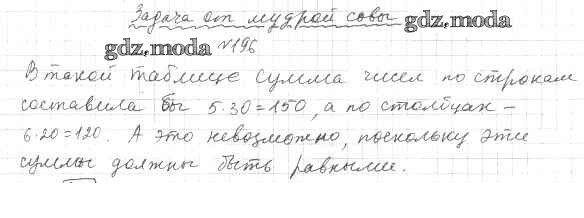 Задача от мудрой совы gdz.moda
gdz.moda №196
В такой таблице сумма чисел по строкам
составила бы 5·30=150, а по столбцам –
6·20=120. А это невозможно, поскольку эти
суммы должны быть равными.